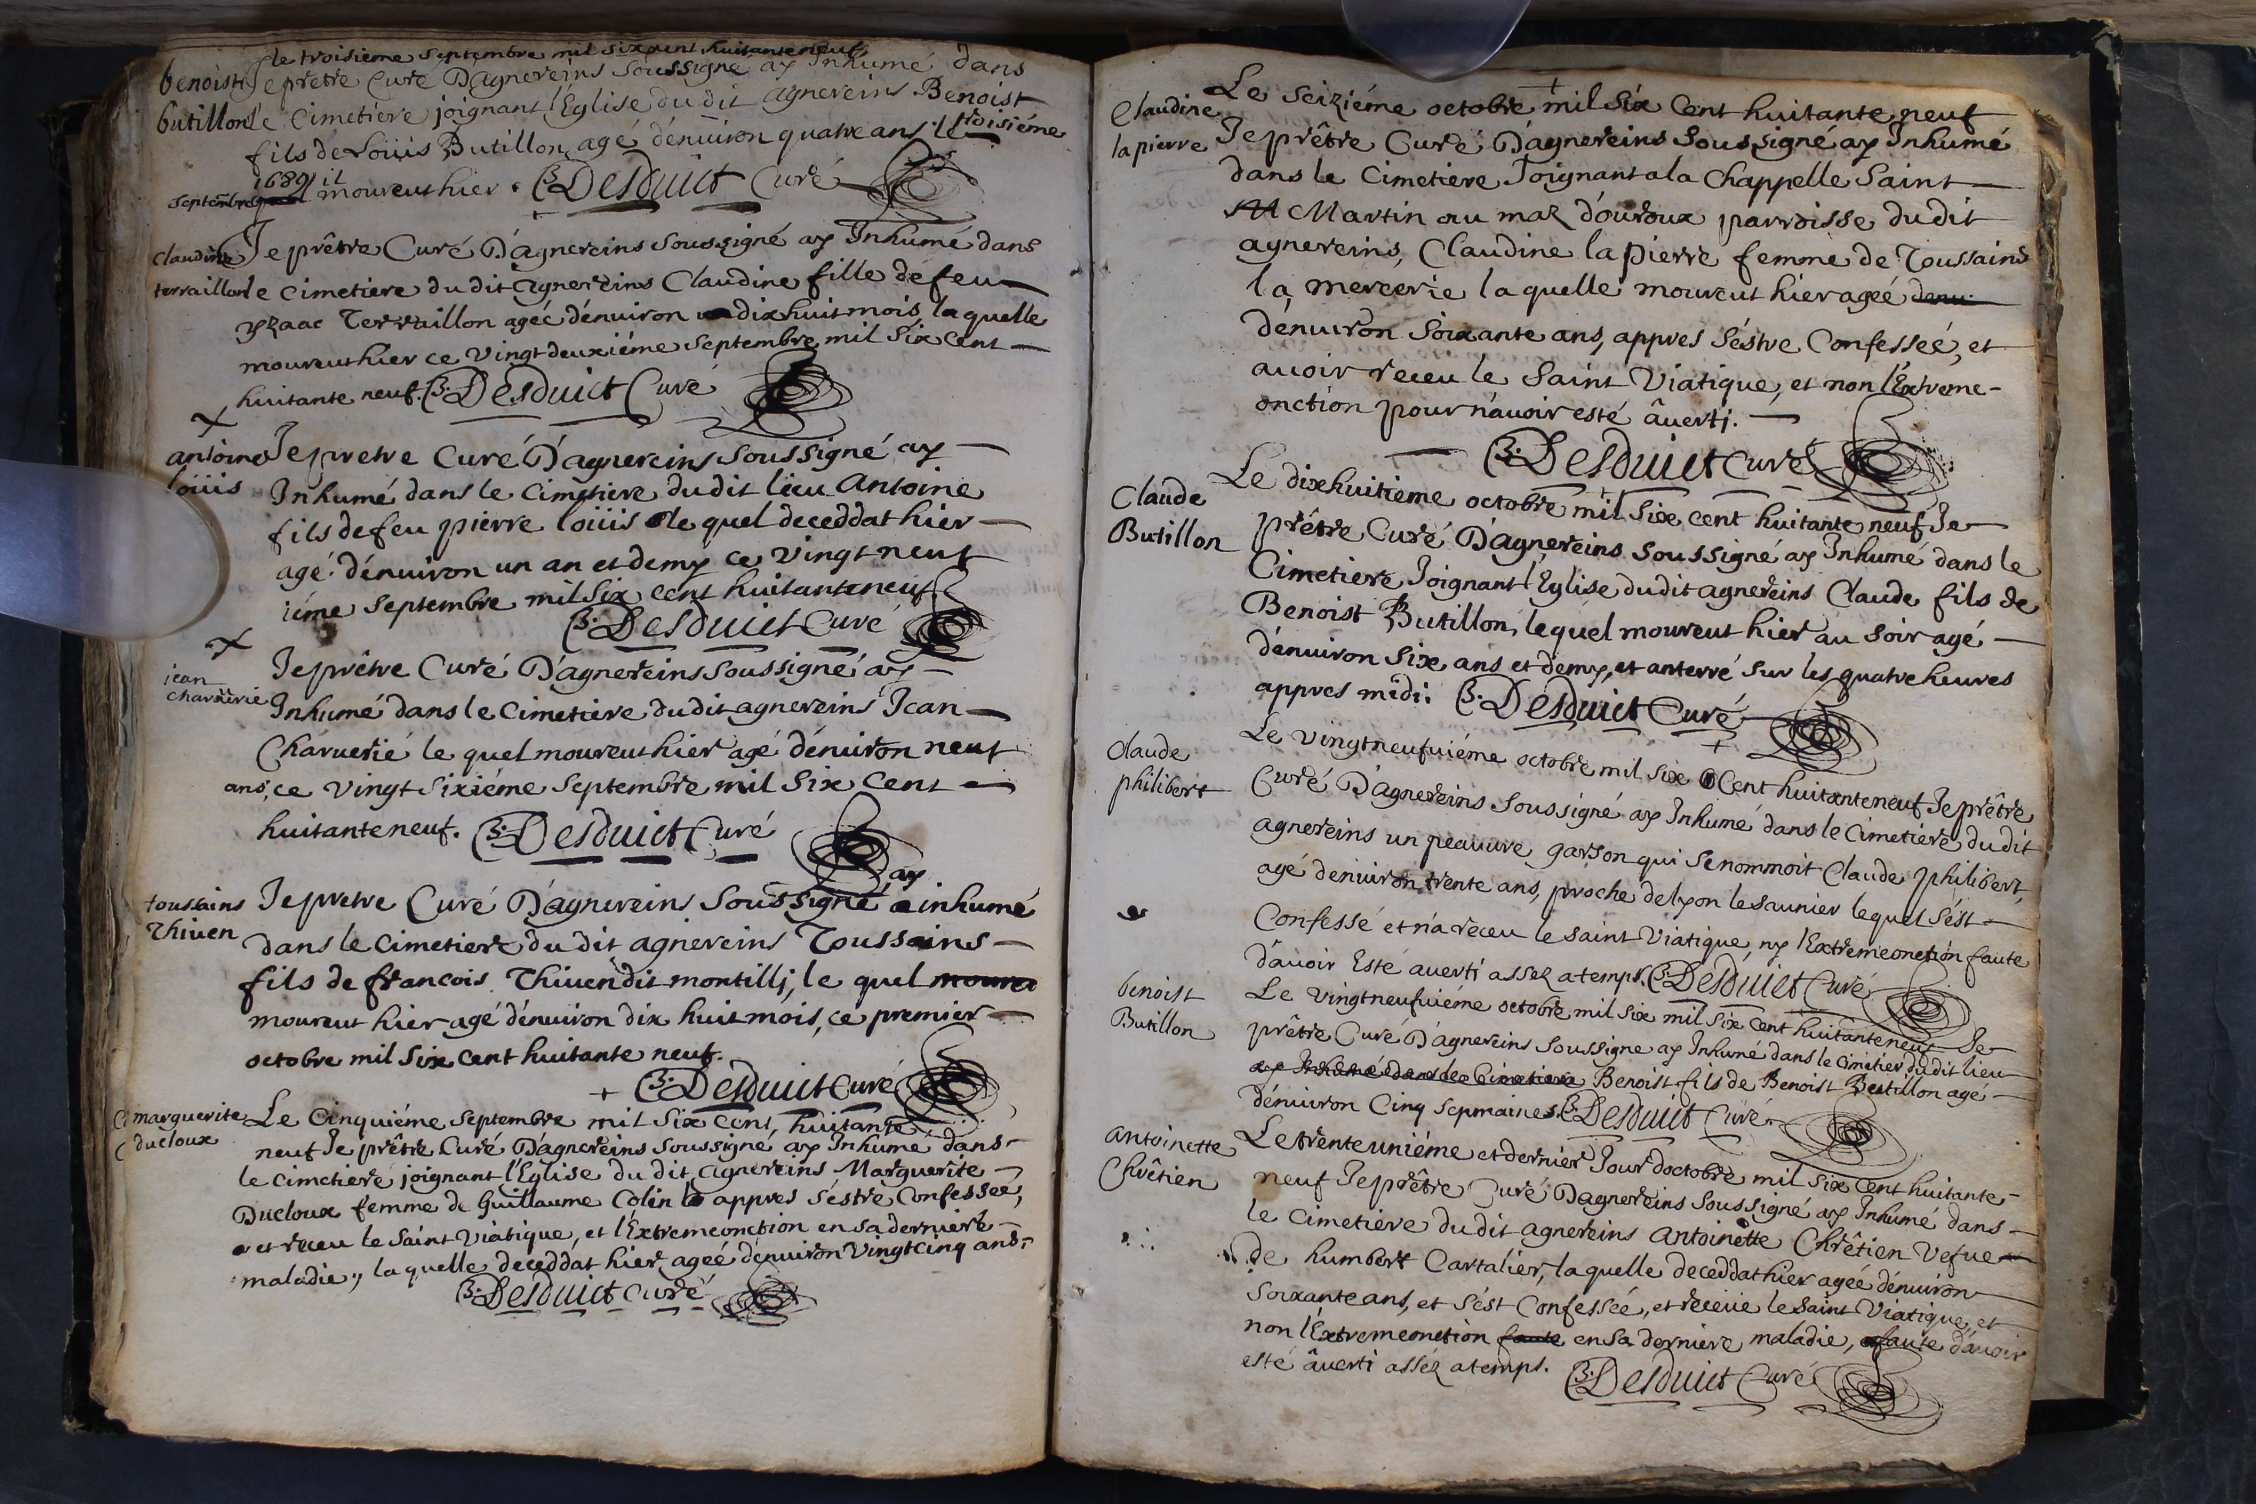 le troisieme septembre mil six cent huitante neuf
benoist Je pretre Curé D'agnereins soussigné ay Inhumé dans
butillon le Cimetiere joignant l'Eglise du dit agnereins Benoist
fils de Loüis Butillon agé dénuiron quatre ans troisiéme
septembre 1689 il moureut hier. B. Desduict Curé
claudine Je prêtre Curé D'agnereins soussigné ay Inhumé dans
terraillon le cimetiere du dit agnereins Claudine fille de feu
yzaac Terraillon ageé dénuiron dixhuit mois, la quelle
moureut hier ce vingt deuxiéme septembre mil six cent
huitante neuf. B. Desduict Curé
antoine Je pretre Curé D'agnereins soussigné ay
loüis Inhumé dans le Cimetiere du dit lieu Antoine
fils de feu pierre loüis le quel deceddat hier
agé dénuiron un an et demy ce vingt neuf
iéme septembre mil six cent huitante neuf
B. Desduict Curé
jean Je prêtre Curé D'agnereins soussigné ay
charuerie Inhumé dans le Cimetiere du dit agnereins Jean
Charuerié le quel moureut hier agé dénuiron neuf
ans, ce vingt sixiéme septembre mil six cent
huitante neuf. B. Desduict Curé
ay
toussains Je pretre Curé D'agnereins soussigné a inhumé
Thiuen dans le cimetiere du dit agnereins Toussains
fils de francois Thiuen dit montilli, le quel moure
moureut hier agé dénuiron dix huit mois, ce premier
octobre mil six cent huitante neuf.
B. Desduict Curé
marguerite Le Cinquiéme septembre mil six cent, huitante
ducloux neuf Je prêtre Curé D'agnereins soussigné ay Inhumé dans
le cimetiere joignant l'Eglise du dit agnereins Marguerite
Ducloux femme de Guillaume Colin appres s'éstre Confesseé,
et receu le saint viatique, et l'Extremeonction en sa derniere
maladie, la quelle deceddat hier ageé dénuiron vingt cinq ans
B. Desduict Curé
Claudine Le seiziéme octobre mil six cent huitante neuf
la pierre Je prêtre Curé D'agnereins soussigné ay Inhumé
dans le Cimetiere Joignant a la Chappelle Saint
M Martin au maz d'ouroux parroisse du dit
agnereins, Claudine la pierre femme de Toussains
la mercerie la quelle moureut hier ageé denu
dénuiron soixante ans, appres s'éstre Confesseé, et
auoir receu le Saint Viatique, et non l'Extreme-
onction pour n'auoir esté âuerti.
B. Desduict Curé
Claude Le dixhuitieme octobre mil six cent huitante neuf Je
Butillon prêtre Curé D'agnereins soussigné ay Inhumé dans le
Cimetiere Joignant l'Eglise du dit agnereins Claude fils de
Benoist Butillon, le quel moureut hier au soir agé
dénuiron six ans et demy, et anterré sur les quatre heures
appres midi. B. Desduict Curé
Claude Le vingtneufuiéme octobre mil six Cent huitante neuf Je prêtre
philibert Curé D'agnereins soussigné ay Inhumé dans le Cimetiere du dit
agnereins un peauure garson qui se nommoit Claude philibert,
agé denuiron trente ans, proche de lyon le saunier lequel s'ést
Confessé et n'a receu le saint Viatique, ny l'Extremeonction faute
d'auoir Esté auerti assez a temps. B. Desduict Curé
benoist Le vingtneufuiéme octobre mil six mil six cent huitante neuf Je
Butillon prêtre Curé D'agnereins soussigne ay Inhumé dans le Cimetier du dit lieu
ay Inhumé dans le Cimetiere Benoist fils de Benoist Butillon agé
dénuiron Cinq sepmaines. B. Desduict Curé
Antoinette Le trente uniéme et dernier Jour d'octobre mil six Cent huitante
Chrêtien neuf Je prêtre Curé D'agnereins soussigné ay Inhumé dans
le cimetiere du dit agnereins Antoinette Chrêtien vefue
de humbert Cartalier, la quelle deceddat hier ageé dénuiron
soixante ans, et s'ést Confesseé, et receüe le saint Viatique, et
non l'Extremeonction faute en sa derniere maladie, faute d'auoir
esté âuerti asséz a temps. B. Desduict Curé